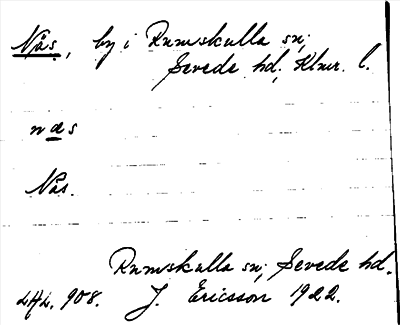 Nås, by i Rumskulla sn;
Sevede hd; Klmr. l.
næs
Nås.
Rumskulla sn; Sevede hd.
J. Ericsson 1922.